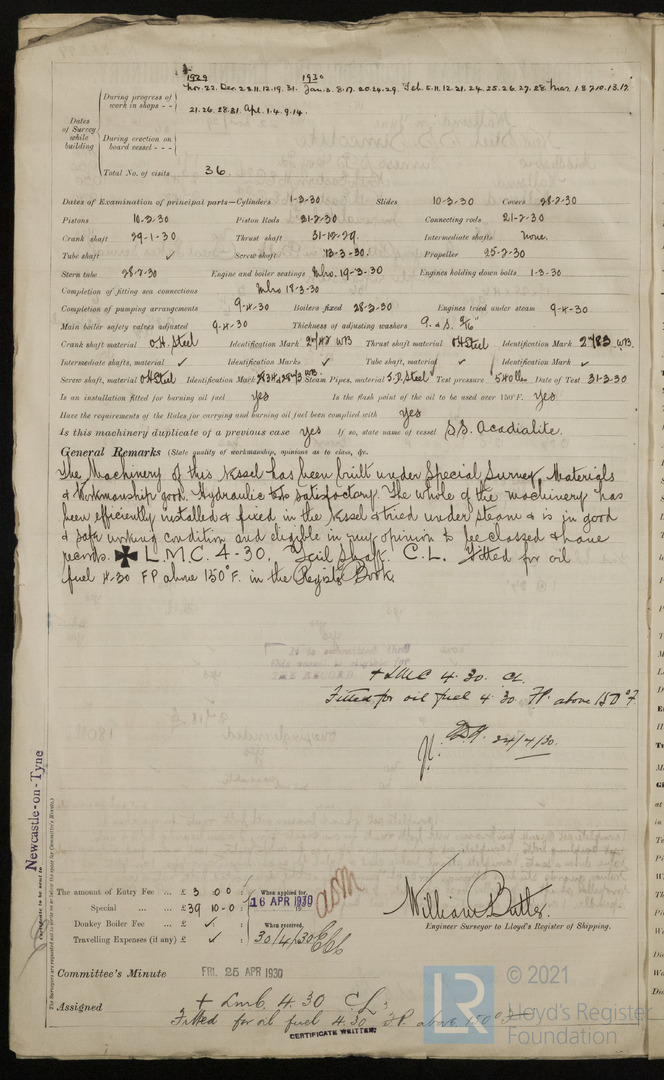 1929 1930
Dates of Survey while building
During progress of work in shops - - Nov. 22. Dec. 2.3.11.12.19.31. Jan. 3.8.17.20.24.29. Feb. 5.11.12.21.24.25.26.27.28. Mar. 1.8.7.10.13.17.
21.26.28.31. Apl. 1.4.9.14.
During erection on board vessel - - -
Total No. of visits 36.
Dates of Examination of principal parts—Cylinders 1-3-30 Slides 10-3-30 Covers 28-2-30
Pistons 10-3-30 Piston Rods 21-2-30 Connecting rods 21-2-30
Crank shaft 29-1-30 Thrust shaft 31-12-29. Intermediate shafts None.
Tube shaft ✓ Screw shaft 13-3-30. Propeller 25-2-30
Stern tube 28-2-30 Engine and boiler seatings Mbro. 19-3-30 Engines holding down bolts 1-3-30
Completion of fitting sea connections Mbro 18-3-30
Completion of pumping arrangements 9-4-30 Boilers fixed 28-3-30 Engines tried under steam 9-4-30
Main boiler safety valves adjusted 9-4-30 Thickness of adjusting washers P. & S. 9/16"
Crank shaft material O.H. Steel Identification Mark WB Thrust shaft material OH Steel Identification Mark 2783 WB.
Intermediate shafts, material ✓ Identification Marks ✓ Tube shaft, material ✓ Identification Mark ✓
Screw shaft, material OH Steel Identification Mark WB Steam Pipes, material S.D. Steel Test pressure 540 lbs Date of Test 31-3-30
Is an installation fitted for burning oil fuel yes Is the flash point of the oil to be used over 150°F. yes
Have the requirements of the Rules for carrying and burning oil fuel been complied with yes
Is this machinery duplicate of a previous case yes If so, state name of vessel S.S. Acadialite.
General Remarks (State quality of workmanship, opinions as to class, &c.
The Machinery of this Vessel has been built under Special Survey, Materials
& Workmanship good. Hydraulic tests satisfactory. The whole of the machinery has
been efficiently installed & fixed in the Vessel & tried under steam & is in good
& safe working condition and eligible in my opinion to be classed & have
records. ✠ L.M.C. 4-30. Tail Shaft. C.L. Fitted for oil
fuel 4-30 FP above 150°F. in the Register Book.
+ LMC 4.30. CL.
Fitted for oil fuel 4.30. FP. above 150°F
24/4/30.
Newcastle-on-Tyne
Certificate to be sent to
The Surveyors are requested not to write on or below the space for Committee's Minute.
The amount of Entry Fee ... £ 3 : 0 : 0 : When applied for,
Special ... ... £ 39 : 10 : 0 : 16 APR 1930
Donkey Boiler Fee ... £ ✓ : : When received,
Travelling Expenses (if any) £ ✓ : : 30/4/30
William Butler.
Engineer Surveyor to Lloyd's Register of Shipping.
Committee's Minute FRI. 25 APR 1930
Assigned + LMC. 4.30 CL;
Fitted for oil fuel 4.30 F.P. above 150°F
CERTIFICATE WRITTEN.
LR
© 2021
Lloyd's Register
Foundation